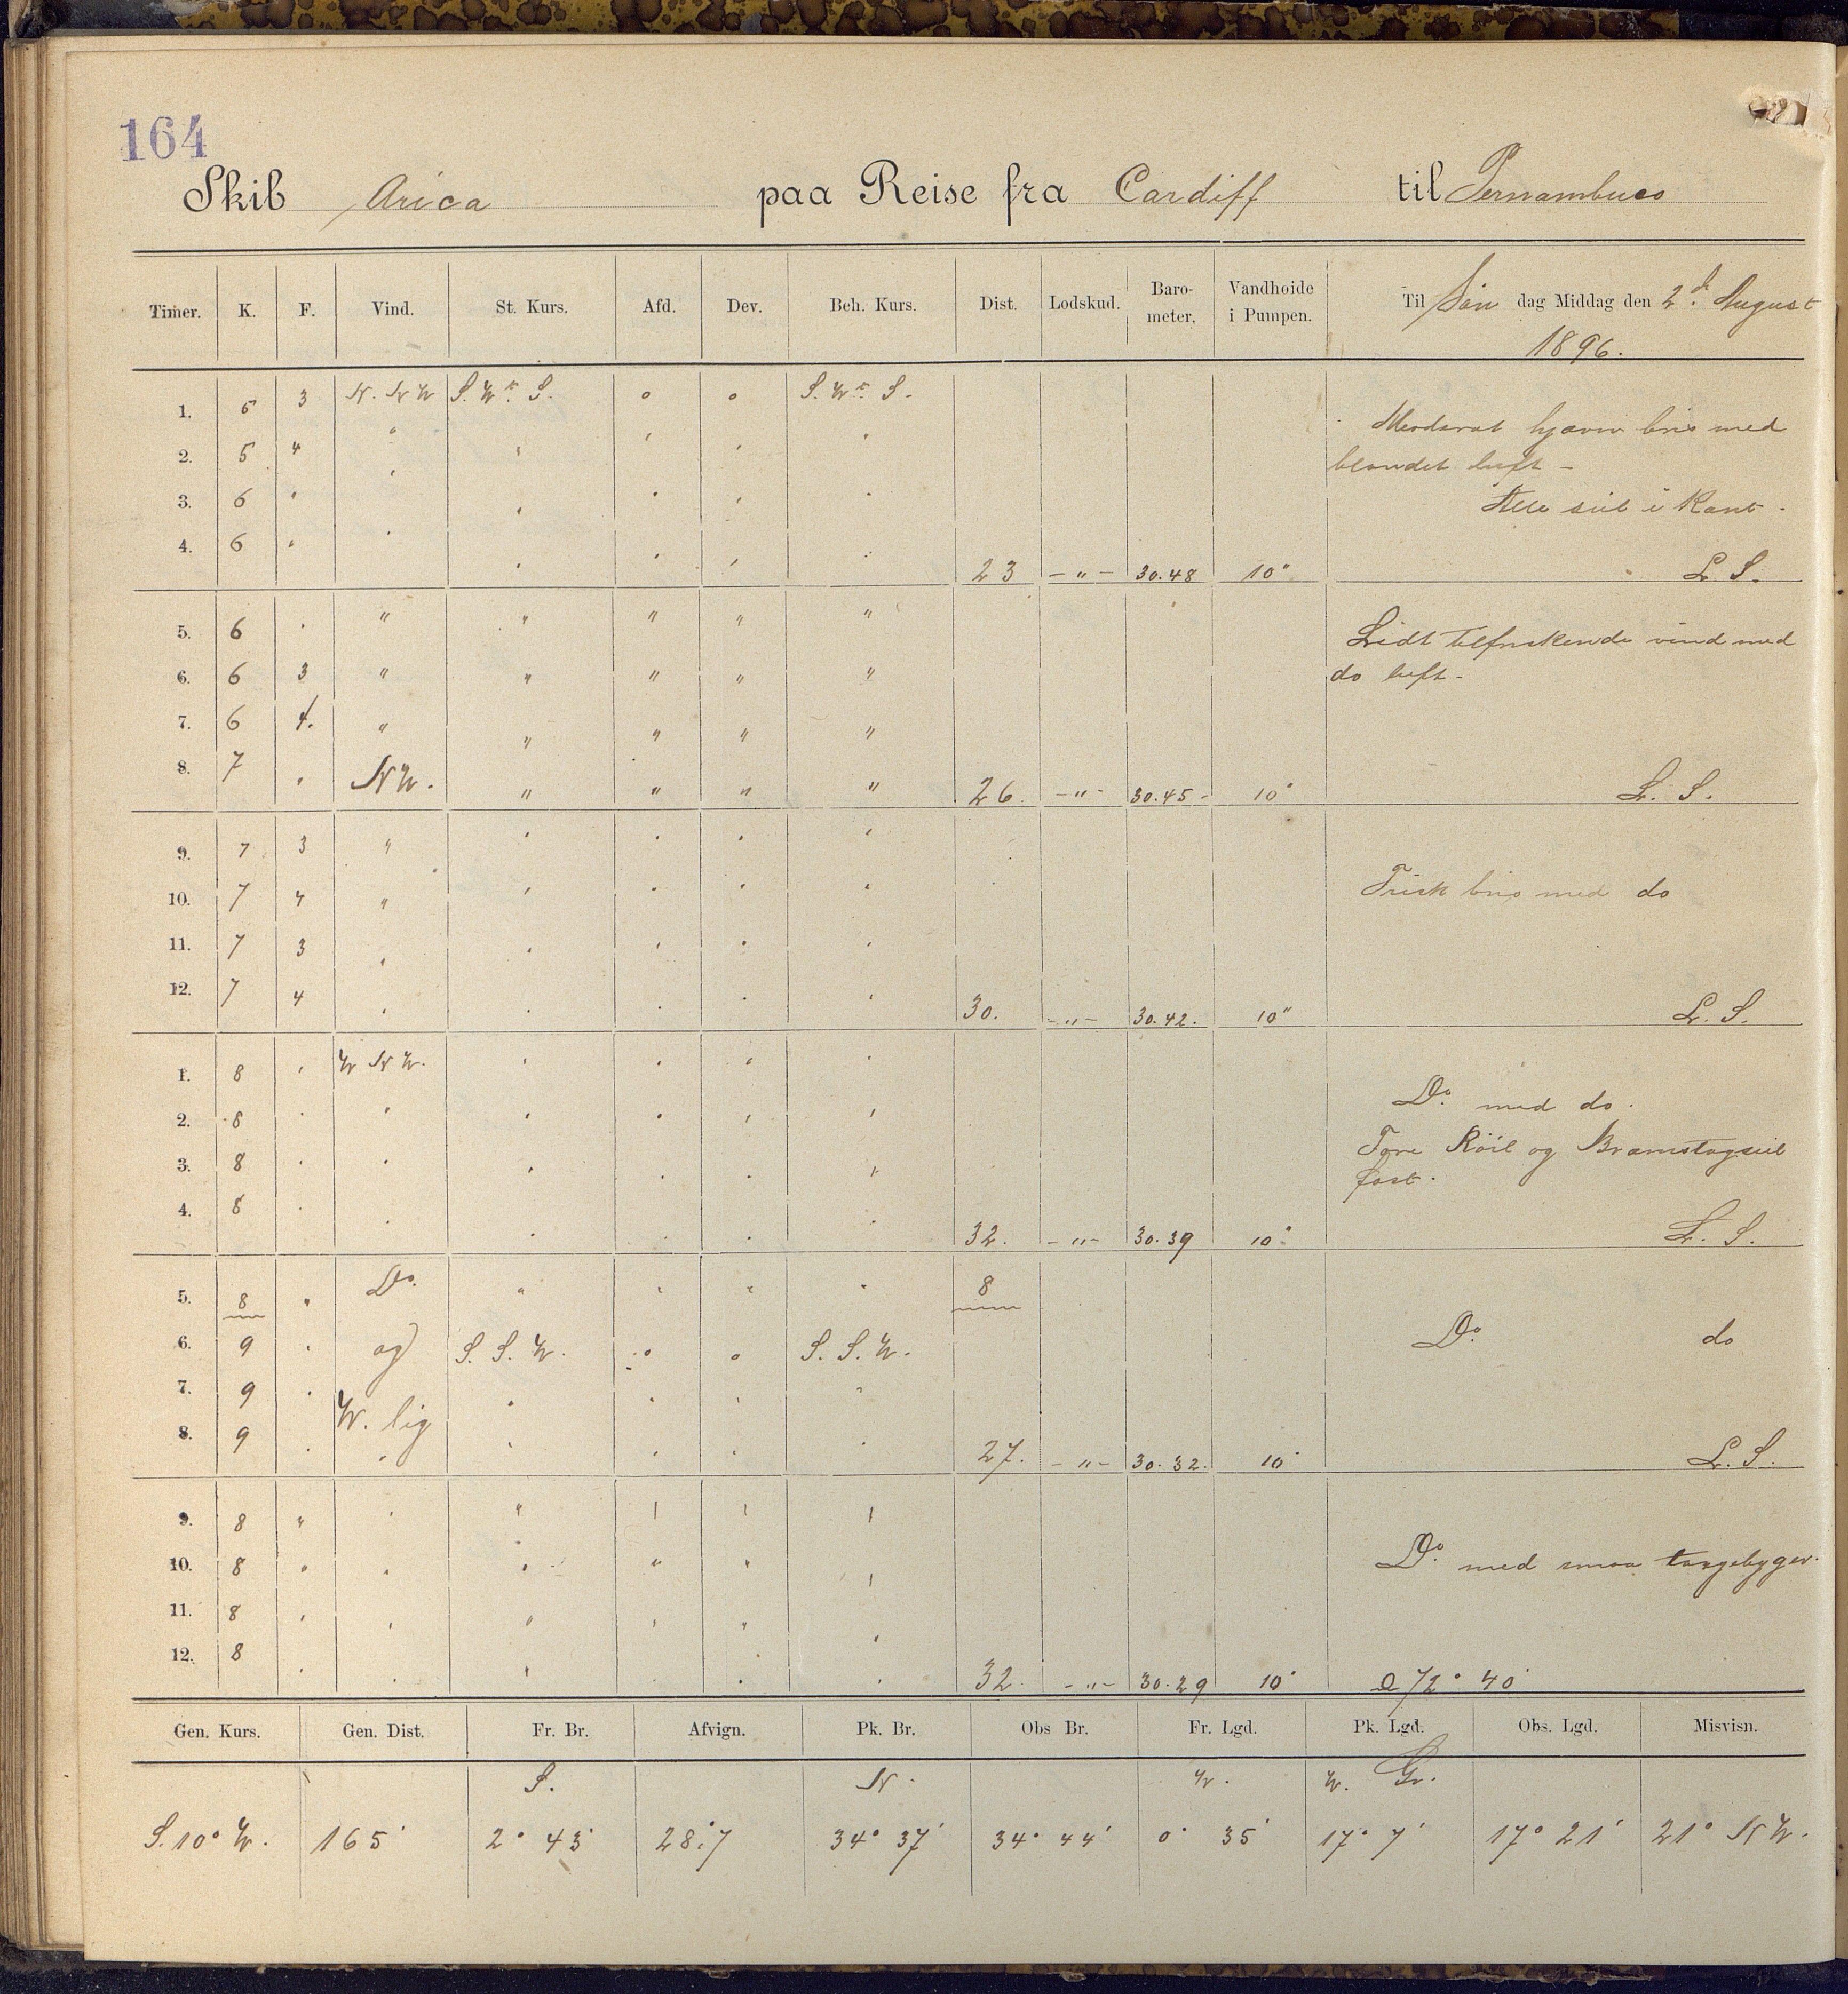 164
Skib Arica paa Reise fra Cardiff til Pernambuco
Timer. K. F. Vind. St. Kurs. Afd. Dev. Beh. Kurs. Dist. Lodskud. Barometer. Vandhoide i Pumpen. Til Søn dag Middag den 2d. August 1896.
1. 5 3 N. N W S. W t. S. o o S. W t. S.
Moderat bris med
2. 5 4 " " " " "
blandet luft –
3. 6 " " " " " "
Alle seil i Kant.
4. 6 " " " " " " 23 – " – 30.48 10" L. S.
5. 6 " " " " " "
Lidt tilfriskende vind med
6. 6 3 " " " " "
do luft –
7. 6 4. " " " " "
8. 7 " N W. " " " " 26. – " – 30.45 – 10" L. S.
9. 7 3 " " " " "
10. 7 4 " " " " " Frisk bris med do
11. 7 3 " " " " "
12. 7 4 " " " " " 30. – " – 30.42. 10" L. S.
1. 8 " W N W. " " " "
Do. med do.
2. 8 " " " " " "
3. 8 " " " " " "
Fore Röil og Bramstagseil
fast.
4. 8 " " " " " " 32. – " – 30.39 10" L. S.
5. 8 " Do. " " " " 8
6. 9 " og S. S. W. o o S. S. W. Do. do
7. 9 " W. lig " " " "
8. 9 " " " " " " 27. – " – 30.32. 10" L. S.
9. 8 " " " " " "
10. 8 " " " " " " Do. med smaa taagebyger.
11. 8 " " " " " "
12. 8 " " " " " " 32. – " – 30.29 10" 72° 40'
Gen. Kurs. Gen. Dist. Fr. Br. Afvign. Pk. Br. Obs Br. Fr. Lgd. Pk. Lgd. Obs. Lgd. Misvisn.
S. N. W. W. Gr.
S. 10° W. 165' 2° 43' 28.'7 34° 37' 34° 44' 0° 35' 17° 7' 17° 21' 21° N W.